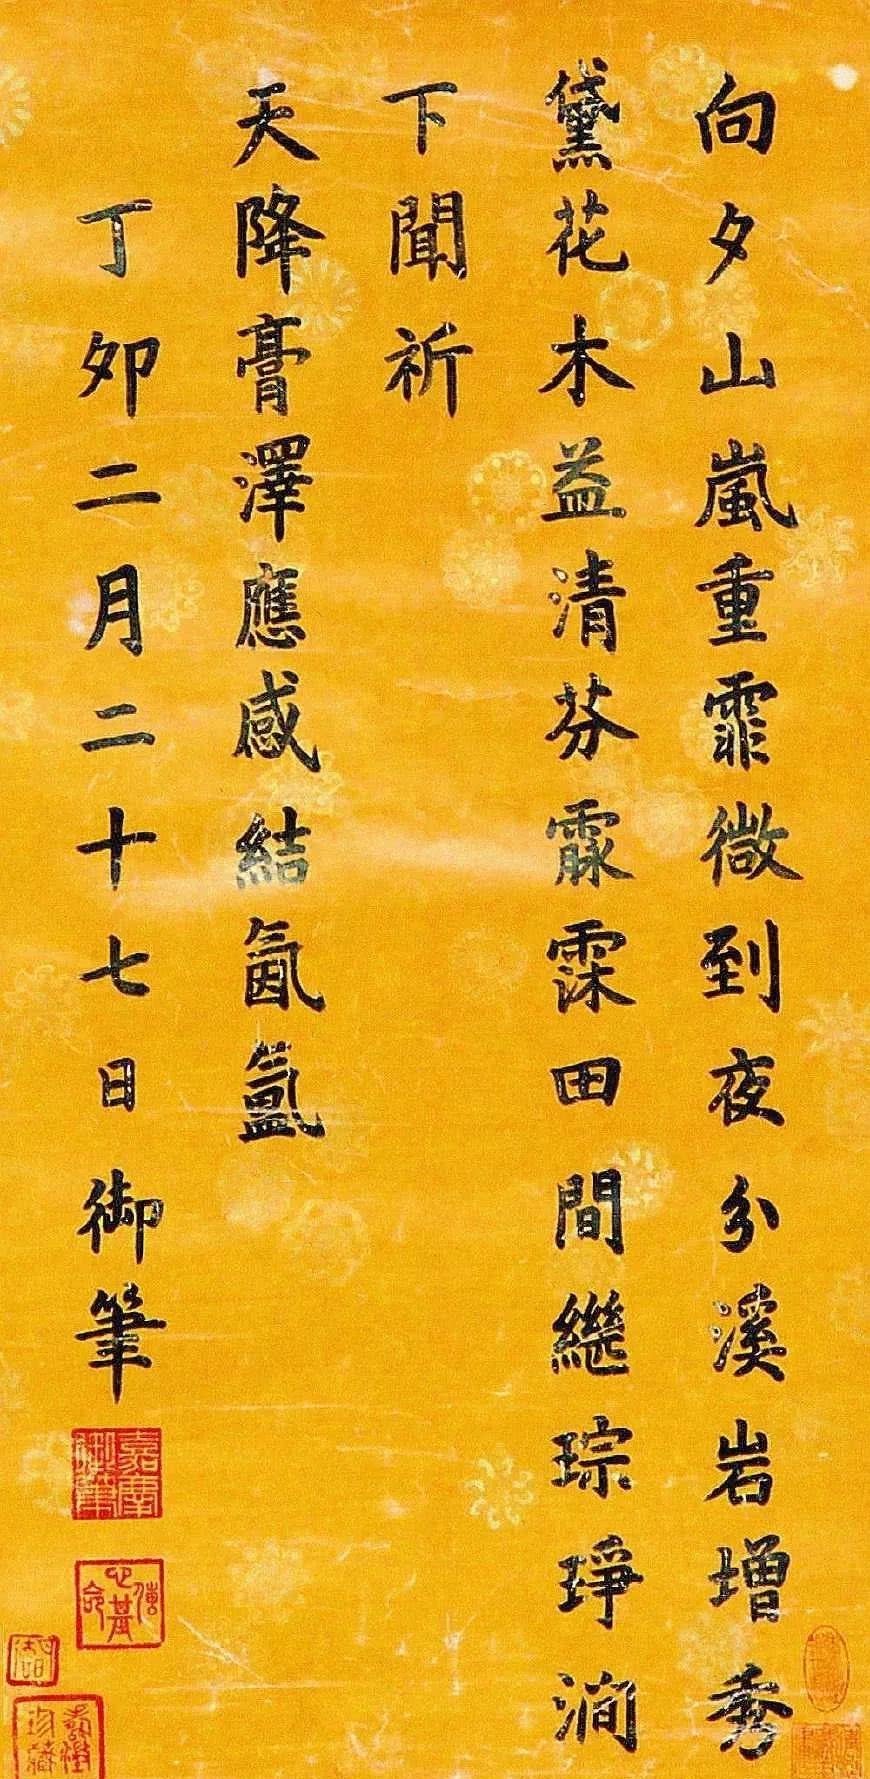 向夕山嵐重霏微到夜分溪岩增秀
黛花木益清芬霡霂田間繼琮琤澗
下聞祈
天降膏澤應感結氤氳
丁卯二月二十七日御筆
嘉慶御筆